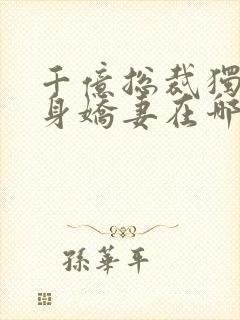 千億總裁獨
身嬌妻在哪
孫華平